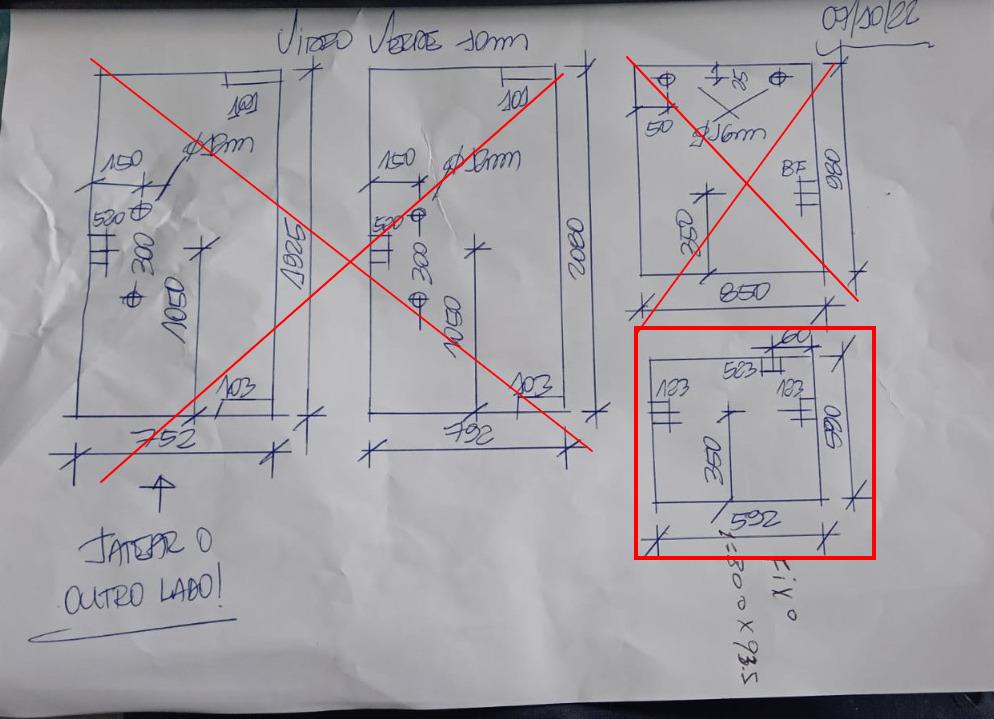 VIDRO VERDE 10mm
07/10/22
101
150
Ø12mm
520
300
1050
1925
103
752
JATEAR O
OUTRO LADO!
101
150
Ø12mm
520
300
1050
2080
103
792
25
50
Ø16mm
BF
350
980
850
60
523
123
123
350
590
592
Fixo
1=300x93.5